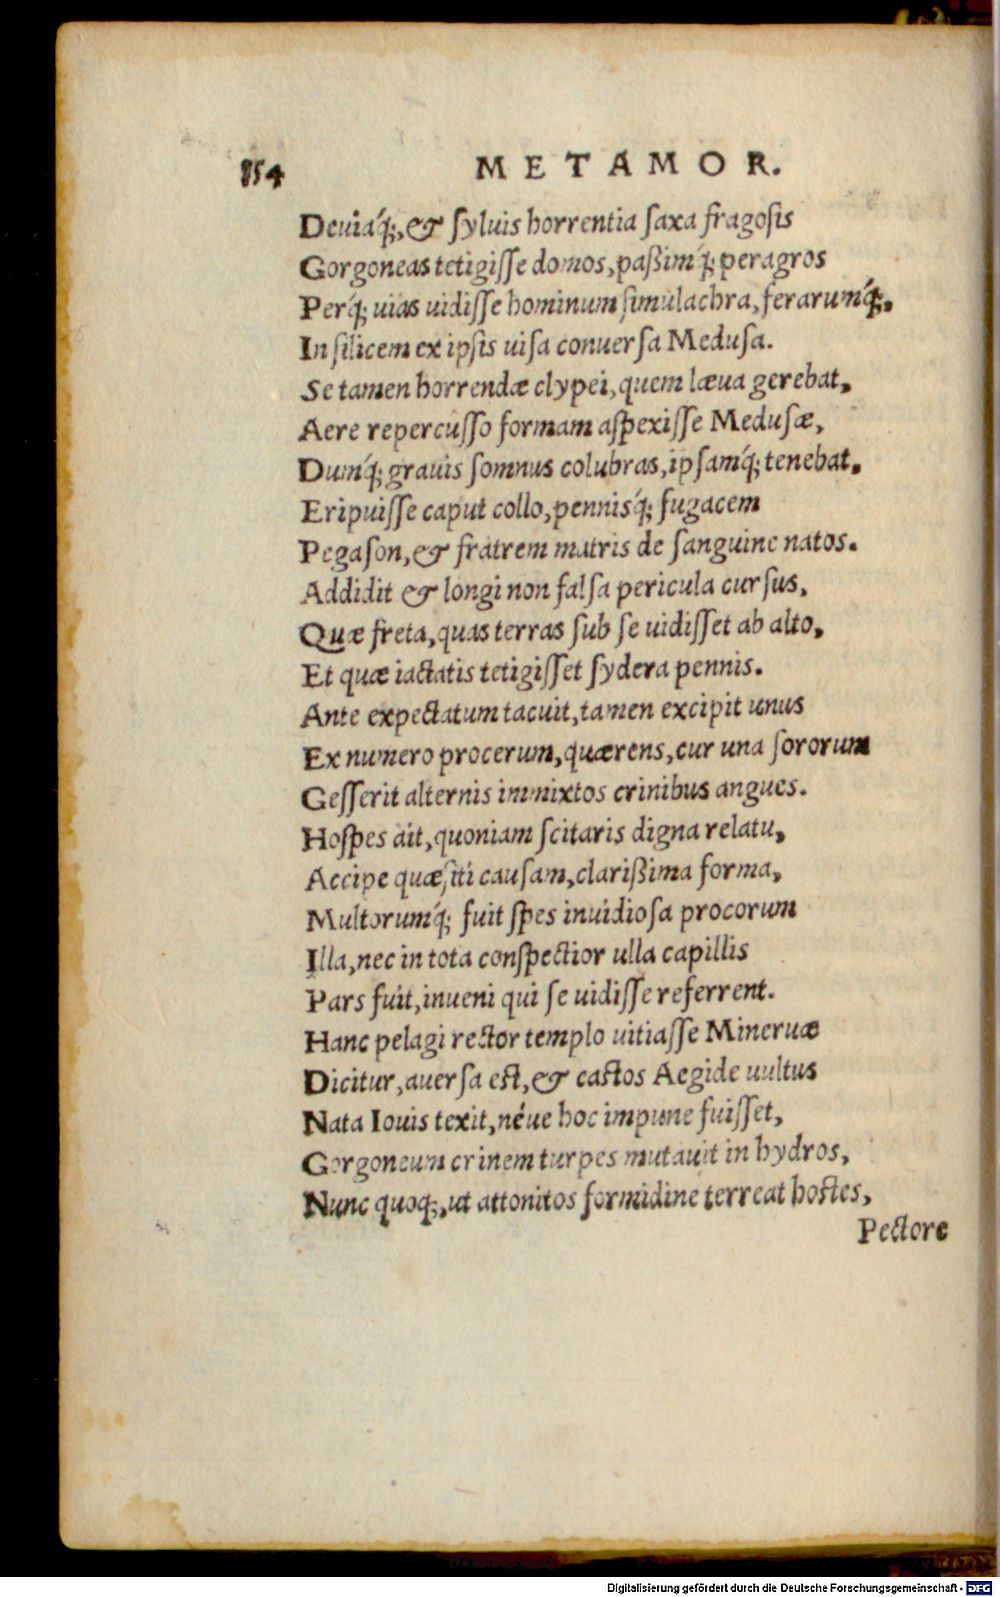 154 METAMOR.
Deuiáq́;, & ſyluis horrentia ſaxa fragoſis
Gorgoneas tetigiſſe domos, paßimq́; per agros
Perq́; uias uidiſſe hominum ſimulachra, ferarumq́;,
In ſilicem ex ipſis uiſa conuerſa Meduſa.
Se tamen horrendæ clypei, quem læua gerebat,
Aere repercuſſo formam aſpexiſſe Meduſæ,
Dumq́; grauis ſomnus colubras, ipſamq́; tenebat,
Eripuiſſe caput collo, pennisq́; fugacem
Pegaſon, & fratrem matris de ſanguine natos.
Addidit & longi non falſa pericula curſus,
Quæ freta, quas terras ſub ſe uidiſſet ab alto,
Et quæ iactatis tetigiſſet ſydera pennis.
Ante expectatum tacuit, tamen excipit unus
Ex numero procerum, quærens, cur una ſororum
Geſſerit alternis immixtos crinibus angues.
Hoſpes ait, quoniam ſcitaris digna relatu,
Accipe quæſiti cauſam, clarißima forma,
Multorumq́; fuit ſpes inuidioſa procorum
Illa, nec in tota conſpectior ulla capillis
Pars fuit, inueni qui ſe uidiſſe referrent.
Hanc pelagi rector templo uitiaſſe Mineruæ
Dicitur, auerſa eſt, & caſtos Aegide uultus
Nata Iouis texit, néue hoc impune fuiſſet,
Gorgoneum crinem turpes mutauit in hydros,
Nunc quoq;, ut attonitos formidine terreat hoſtes,
Pectore
Digitalisierung gefördert durch die Deutsche Forschungsgemeinschaft - DFG